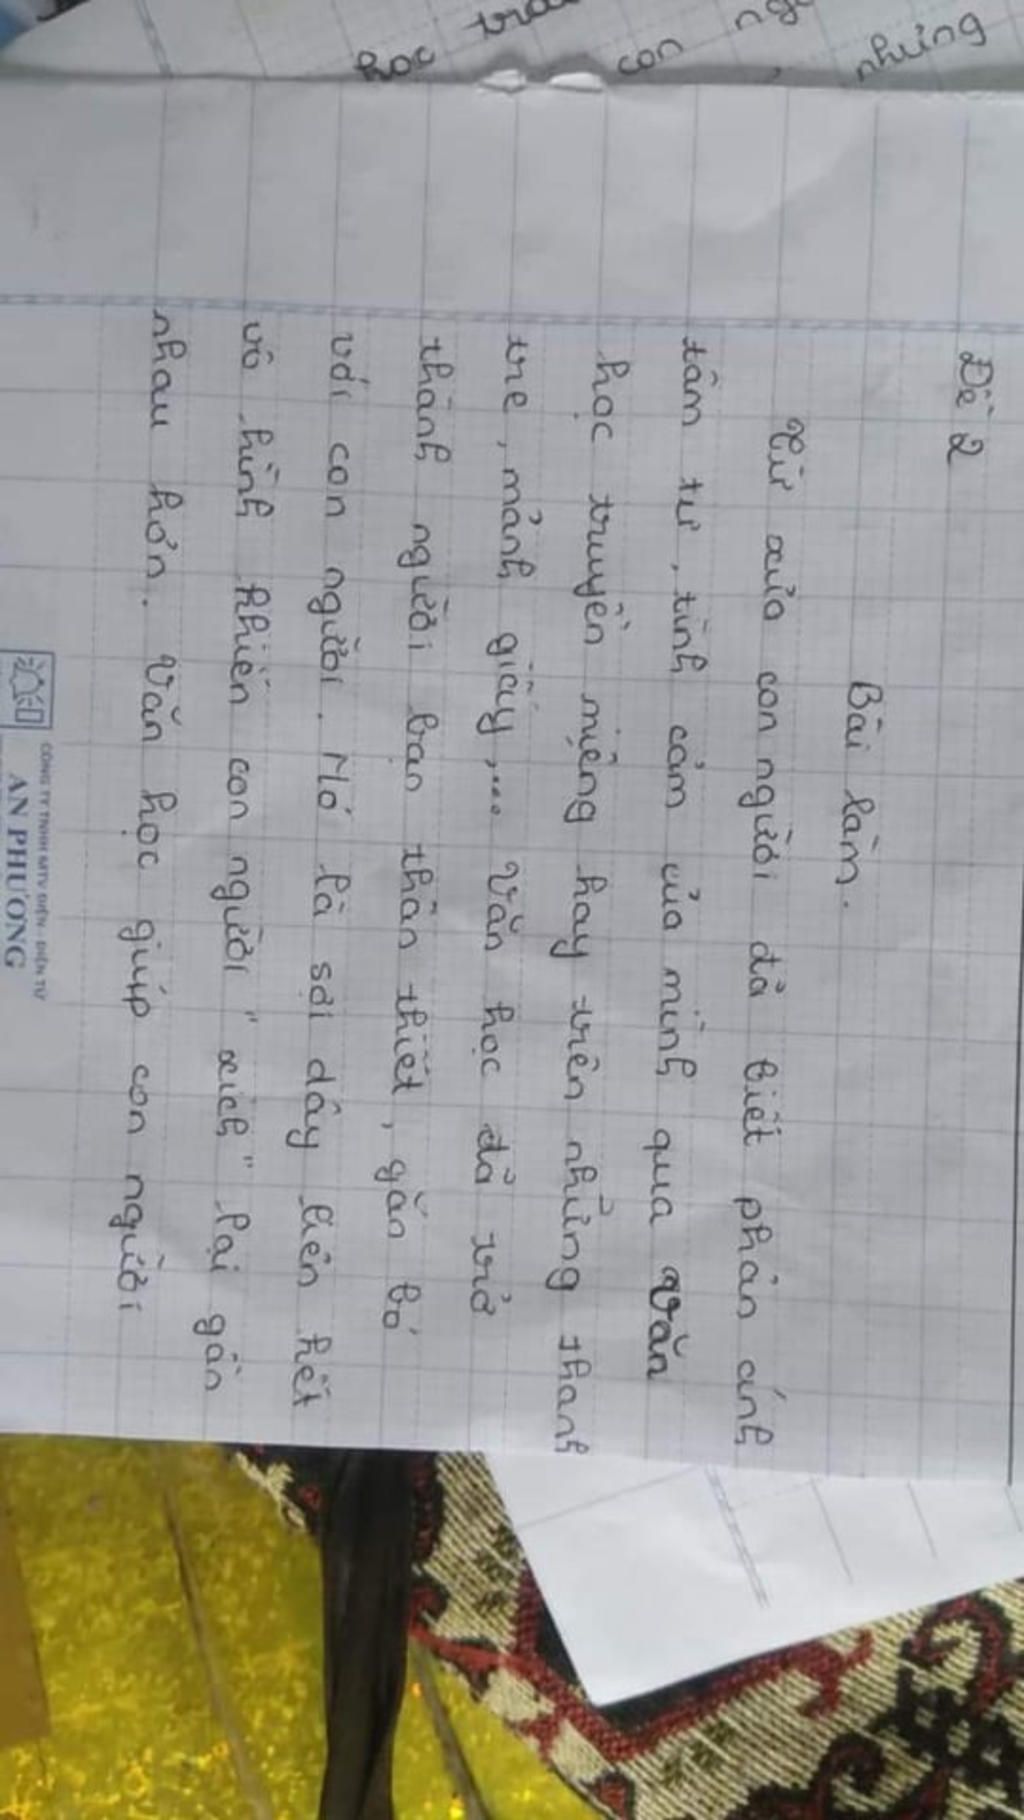 Đề 2
Bài làm.
Từ xưa con người đã biết phản ánh
tâm tư, tình cảm của mình qua văn
học truyền miệng hay trên những thanh
tre, mảnh giấy,... Văn học đã trở
thành người bạn thân thiết, gắn bó
với con người. Nó là sợi dây liên kết
vô hình khiến con người "xích" lại gần
nhau hơn. Văn học giúp con người
CÔNG TY TNHH MTV ĐIỆN - ĐIỆN TỬ
AN PHƯƠNG
những
còn
học